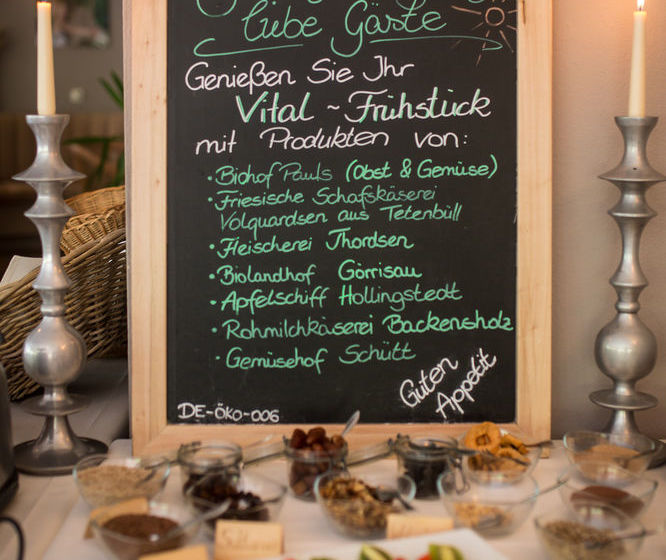 Liebe Gäste
Genießen Sie Ihr
Vital ~ Frühstück
mit Produkten von:
• Biohof Pauls (Obst & Gemüse)
• Friesische Schafskäserei
Volquardsen aus Tetenbüll
• Fleischerei Thordsen
• Biolandhof Görrisau
• Apfelschiff Hollingstedt
• Rohmilchkäserei Backensholz
• Gemüsehof Schütt
Guten
Appetit
DE-ÖKO-006